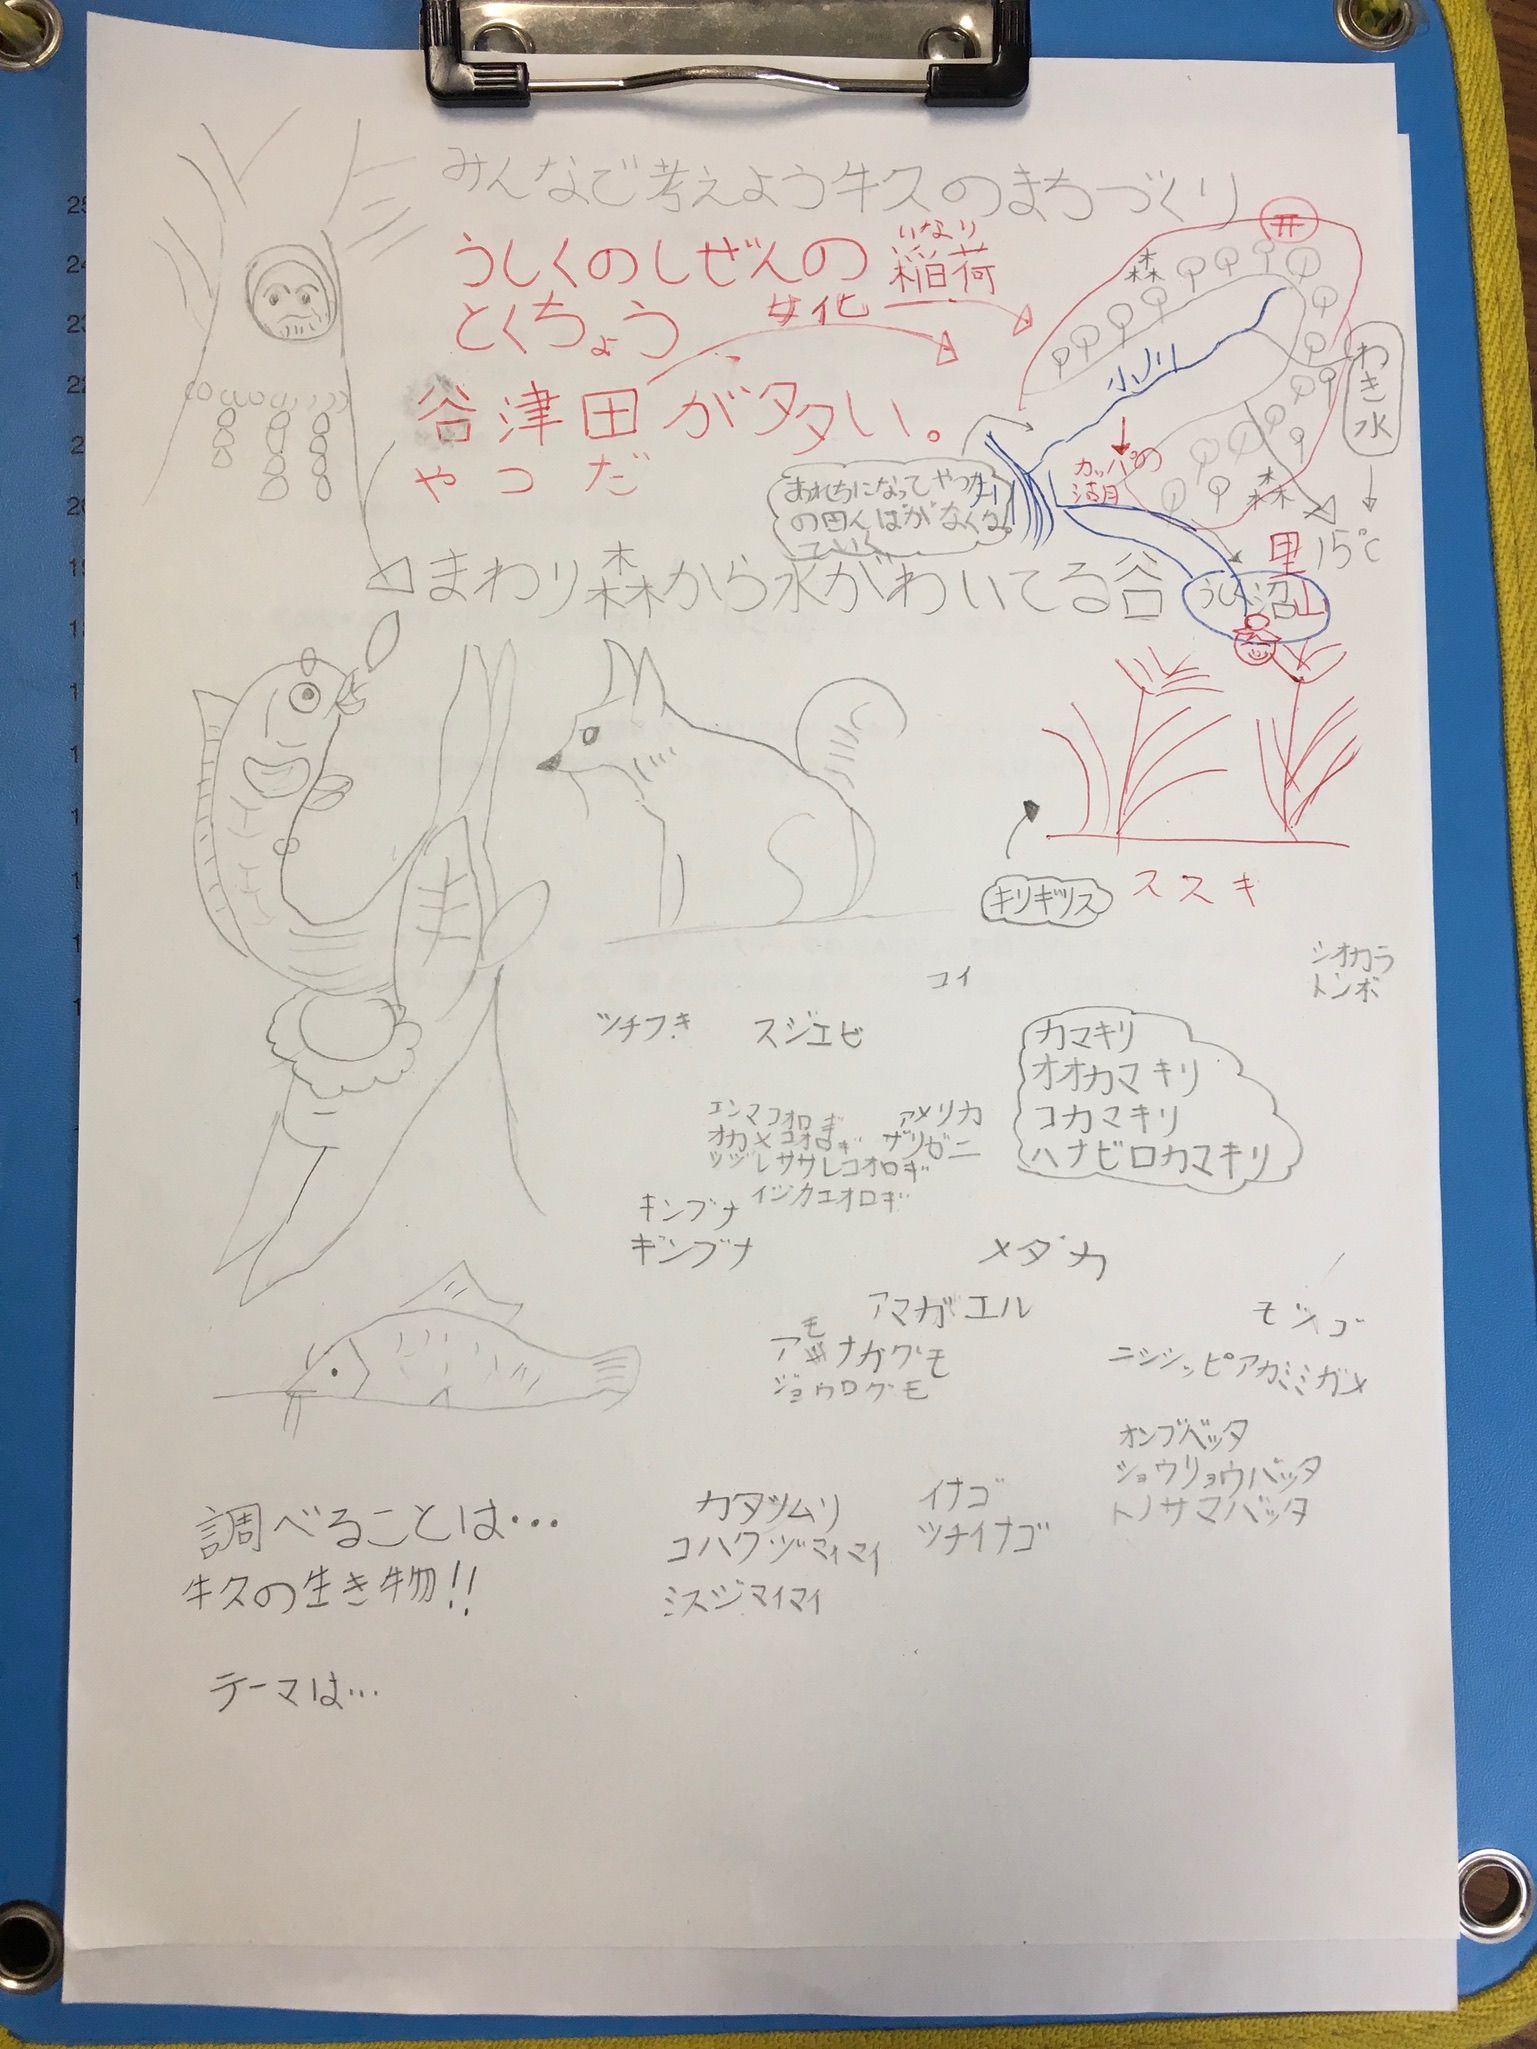 みんなで考えよう牛久のまちづくり
うしくのしぜんの
とくちょう
いなり
稲荷
女化
谷津田が多い。
やつだ
森
小川
わき水
カッパの
森
15℃
里山
おれちになってやつ
の田んぼがなくな
っていく
まわり森からが水がわいてる谷
うしく沼
キリギリス
ススキ
シオカラ
トンボ
コイ
ツチフキ
スジエビ
カマキリ
オオカマキリ
コカマキリ
ハナビロカマキリ
エンマコオロギ
オカメコオロギ
ツヅレササレコオロギ
アメリカ
ザリガニ
キンブナ
ギンブナ
メダカ
アマガエル
モツゴ
アシナガグモ
ジョウログモ
ニシシッピアカミミガメ
オンブバッタ
ショウリョウバッタ
トノサマバッタ
カタツムリ
コハクヅマイマイ
ミスジマイマイ
イナゴ
ツチイナゴ
調べることは…
牛久の生き物!!
テーマは…